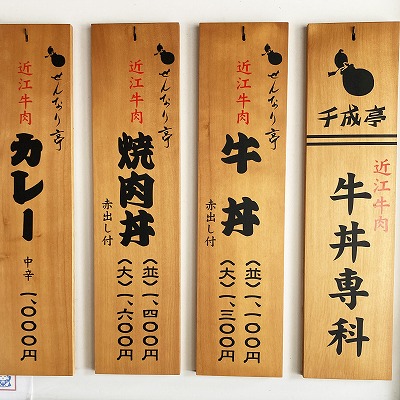 千成亭
近江牛肉
牛丼専科
せんなり亭
近江牛肉
牛丼
赤出し付
(並)一、一〇〇円
(大)一、三〇〇円
せんなり亭
近江牛肉
焼肉丼
赤出し付
(並)一、四〇〇円
(大)一、六〇〇円
せんなり亭
近江牛肉
カレー
中辛
一、〇〇〇円